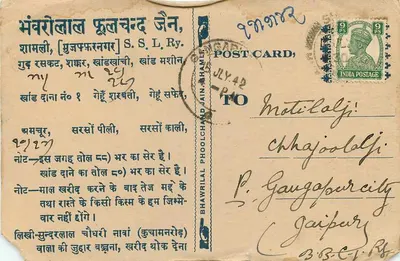 भंवरलाल फूलचन्द जैन,
शामली, [मुजफ्फरनगर] S. S. L. Ry.
गुड़ रसकट, शक्कर, खांडखांची, खांड मशीन
खांड दाना नं० १ गेहूँ शरबती, गेहूँ सफेद,
अमचूर, सरसों पीली, सरसों काली,
नोट—इस जगह तोल ८८) भर का सेर है।
खांड दाने का तोल ८०) भर का सेर है।
नोट—माल खरीद करने के बाद तेज मद्दे के
तथा रास्ते के किसी किस्म के हम जिम्मे
वार नहीं होंगे।
लिखी-सुन्दरलाल चौधरी नावां (कुचामनरोड़)
वाला की जुहार बञ्चना, खरीद थोक देना
BHAWRILAL PHOOLCHAND JAIN, SHAMLI
POST CARD,
INDIA POSTAGE
JLY 42
TO
Motilalji
Chhajoolalji
P. Gangapurcity
Jaipur
B.B.C.I. Ry